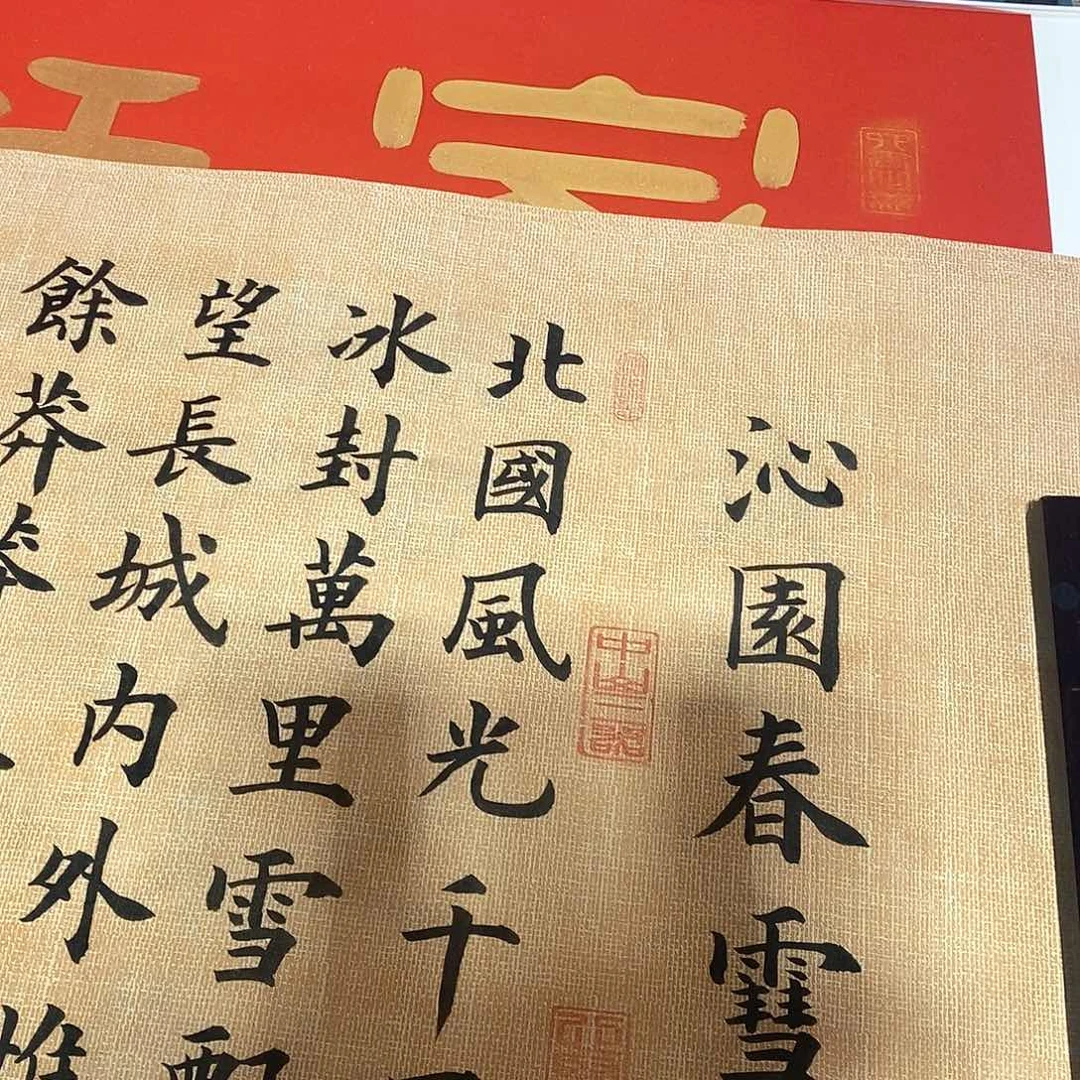 沁園春䨮
北國風光千
冰封萬里雪
望長城内外惟
餘莽莽